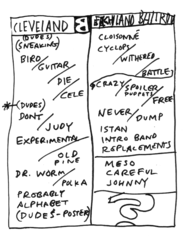 CLEVELAND
(DUDES)
(SNEAKING)
BIRD/
GUITAR
DIE/
CELE
*(DUDES)
DONT/
JUDY
EXPERIMENTAL/
OLD
PINE
DR. WORM/
POLKA
PROBABLY
ALPHABET
(DUDES-POSTER)
BALLROOM
CLOISONNÉ
CYCLOPS/
WITHERED
BATTLE)
*CRAZY/
SPOILER
PUPPETS/
FREE
NEVER/
DUMP
ISTAN
INTRO BAND
REPLACEMENTS
MESO
CAREFUL
JOHNNY